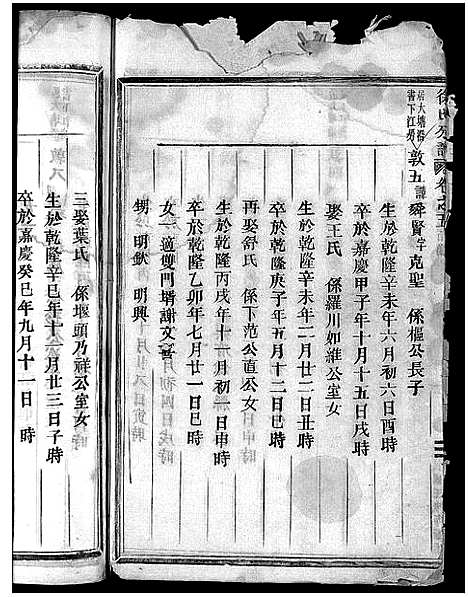 徐氏
居大塘沿
書下江房
敦五 諱舜賢字克聖 係樞公長子
生於乾隆辛未年六月初六日酉時
卒於嘉慶甲子年十月十五日戌時
娶王氏 係羅川如維公室女
生於乾隆辛未年二月廿二日丑時
卒於乾隆庚子年五月十二日巳時
再娶舒氏 係下范公直公女
生於乾隆丙戌年十一月初一日申時
卒於乾隆乙卯年七月廿一日巳時
女一適雙門壻謝文
甥 明欽 明興
三娶葉氏 係堰頭乃祥公室女
生於乾隆辛巳年十一月廿三日子時
卒於嘉慶癸巳年九月十一日 時